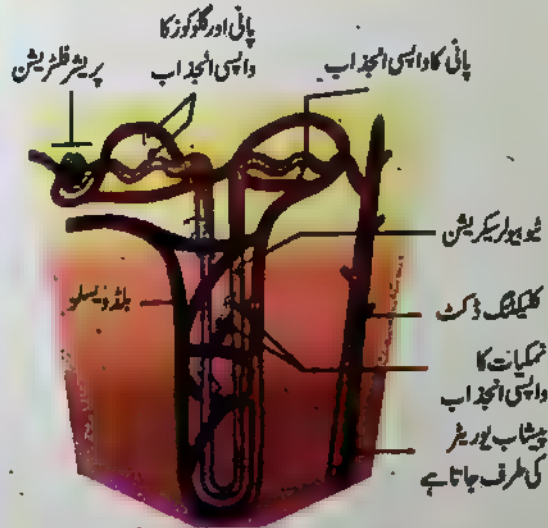 پانی اور گلوکوز کا
واپسی انجذاب
پانی کا واپسی انجذاب
پریشر فلٹریشن
ٹیوبیولر سکریشن
بلڈ ویسلز
کلیکٹنگ ڈکٹ
نمکیات کا
واپسی انجذاب
پیشاب یوریٹر
کی طرف جاتا ہے